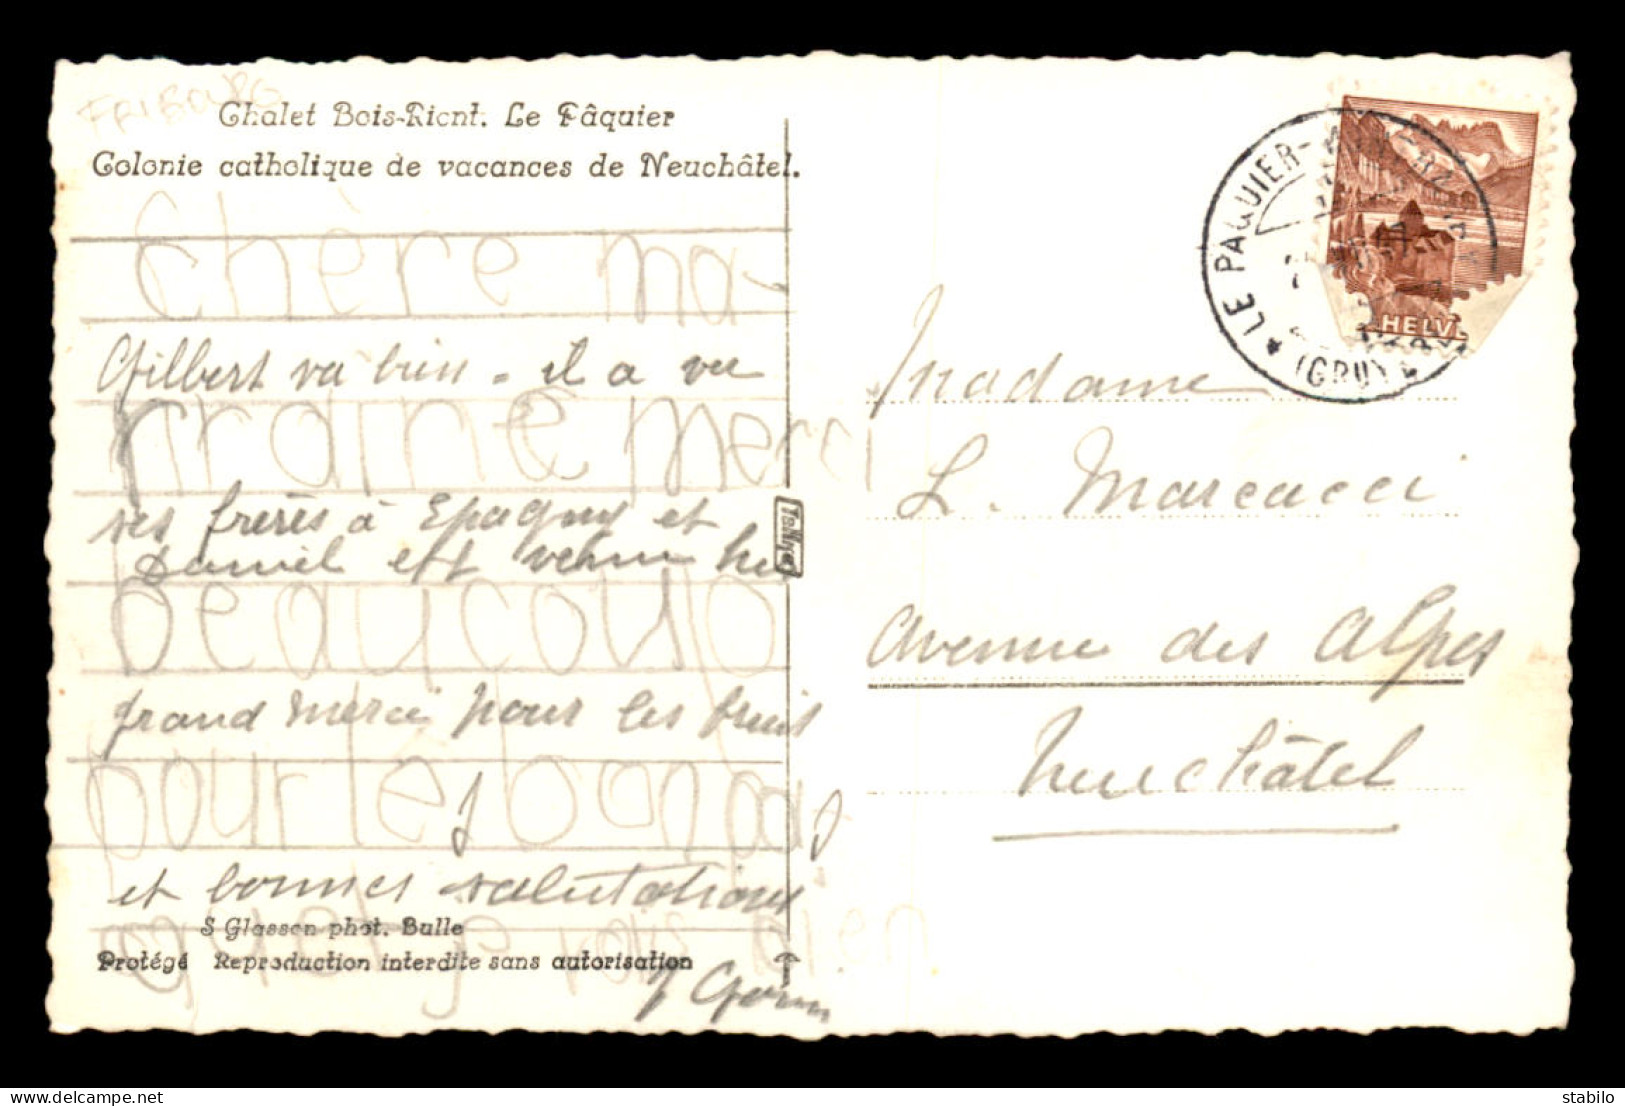 FRIBOURG
Chalet Bois-Rient. Le Pâquier
Colonie catholique de vacances de Neuchâtel.
Chère ma-
Gilbert va bien - il a vu
rraine merci
ses frères à Epagny et
Daniel est venu hier
beaucoup
grand merci pour les fruits
pour le bonbons
et bonnes salutations
S Glasson phot. Bulle
Protégé Reproduction interdite sans autorisation
bien
LE PAQUIER-
(GRUY
HELV
Madame
L. Marcacci
Avenue des Alpes
Neuchâtel